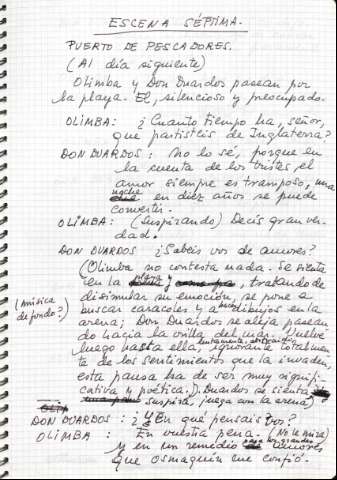 ESCENA SÉPTIMA.
PUERTO DE PESCADORES.
(Al día siguiente)
Olimba y Don Duardos pasean por
la playa. El, silencioso y preocupado.
OLIMBA: ¿Cuánto tiempo ha, señor,
que partisteis de Inglaterra?
DON DUARDOS: No lo sé, porque en
la cuenta de los tristes, el
amor siempre es tramposo, una
noche en diez años se puede
convertir.
OLIMBA: (Suspirando) Decís gran ver-
dad.
DON DUARDOS: ¿Sabéis vos de amores?
(Olimba no contesta nada. Se sienta
en la playa y, tratando de
disimular su emoción, se pone a
(música de fondo?) buscar caracoles y a dibujos en la
arena; Don Duardos se aleja pasean
do hacia la orilla del mar. Vuelve
luego hasta ella, ignorante totalmen
te de los sentimientos que la invaden,
esta pausa ha de ser muy signifi-
cativa y poética.). Duardos se sienta
suspira, juega con la arena)
DON DUARDOS: ¿Y En qué pensais vos?
OLIMBA: En vuestra pena. (No le mira)
y en un remedio para los grandes amores
que Osmaquin me confió.